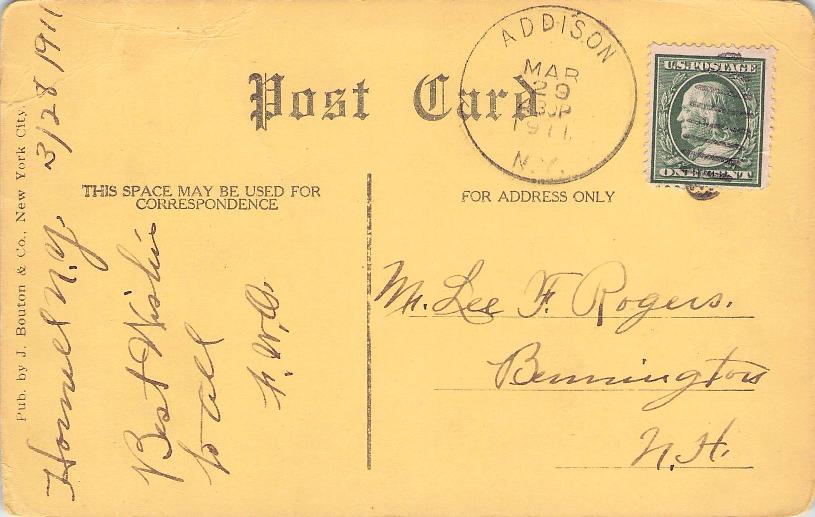 Post Card
THIS SPACE MAY BE USED FOR
CORRESPONDENCE
FOR ADDRESS ONLY
ADDISON
MAR
29
1911
N.Y.
U.S. POSTAGE
Pub. by J. Bouton & Co., New York City.
Hornell N.Y. 3/28 1911
Best Wishes
to all
Mr. Lee F. Rogers.
Bennington
N.H.